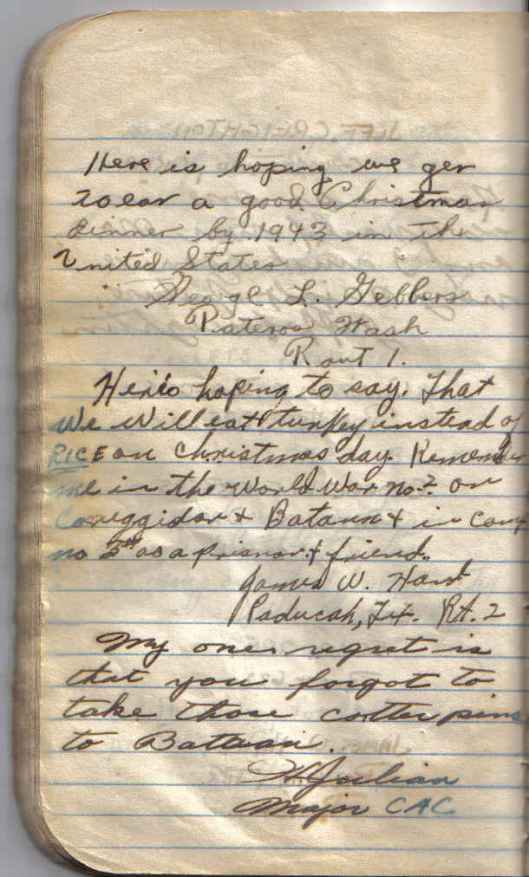 Here is hoping we ger
to ear a good Christmas
dinner by 1943 in the
United States
George L. Gebbers
Pateros Wash
Rout 1.
Here's hoping to say. That
We will eat turkey instead of
RICE on Christmas day. Remember
me in the World War no. 2. on
Coreggidor & Bataan & in Camp
no 3 as a Prisnor & friend.
James W. Hand
Paducah, Tex. Rt. 2
My one regret is
that you forgot to
take those cotter pins
to Bataan.
Julian
Major CAC